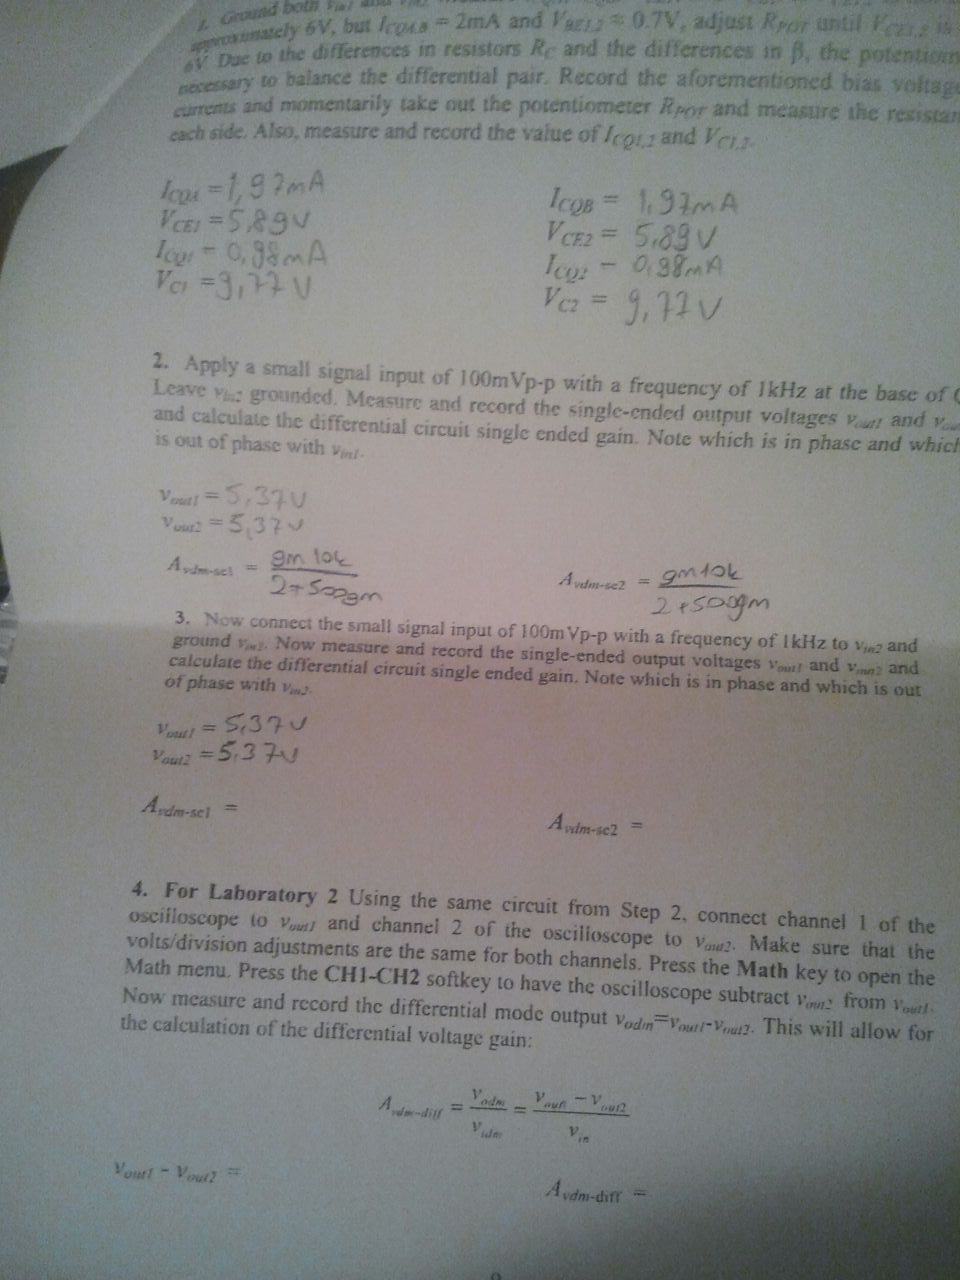 1. Ground both
approximately 6V, but ICQA,B = 2mA and VBE1,2 ≈ 0.7V, adjust RPOT until VCE1,2 is
6V Due to the differences in resistors RC and the differences in β, the potentiom
necessary to balance the differential pair. Record the aforementioned bias voltage
currents and momentarily take out the potentiometer RPOT and measure the resistan
each side. Also, measure and record the value of ICQ1,2 and VC1,2.
ICQA = 1,97mA
ICQB = 1,97mA
VCE1 = 5,89V
VCE2 = 5,89V
ICQ1 - 0,98mA
ICQ2 - 0,98mA
VC1 = 9,77V
VC2 = 9,77V
2. Apply a small signal input of 100mVp-p with a frequency of 1kHz at the base of
Leave vin2 grounded. Measure and record the single-ended output voltages vout1 and vout
and calculate the differential circuit single ended gain. Note which is in phase and which
is out of phase with vin1.
vout1 = 5,37V
vout2 = 5,37V
Avdm-se1 = gm 10k / 2+500gm
Avdm-se2 = gm10k / 2+500gm
3. Now connect the small signal input of 100mVp-p with a frequency of 1kHz to vin2 and
ground vin1. Now measure and record the single-ended output voltages vout1 and vout2 and
calculate the differential circuit single ended gain. Note which is in phase and which is out
of phase with vin2.
vout1 = 5,37V
vout2 = 5,37V
Avdm-se1 =
Avdm-se2 =
4. For Laboratory 2 Using the same circuit from Step 2, connect channel 1 of the
oscilloscope to vout1 and channel 2 of the oscilloscope to vout2. Make sure that the
volts/division adjustments are the same for both channels. Press the Math key to open the
Math menu. Press the CH1-CH2 softkey to have the oscilloscope subtract vout2 from vout1.
Now measure and record the differential mode output vodm=vout1-vout2. This will allow for
the calculation of the differential voltage gain:
Avdm-diff = vodm / vidm = vout1 - vout2 / vin
vout1 - vout2 =
Avdm-diff =